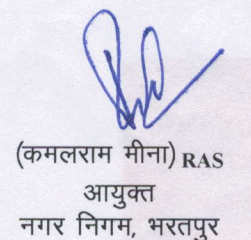 (कमलराम मीना) RAS
आयुक्त
नगर निगम, भरतपुर